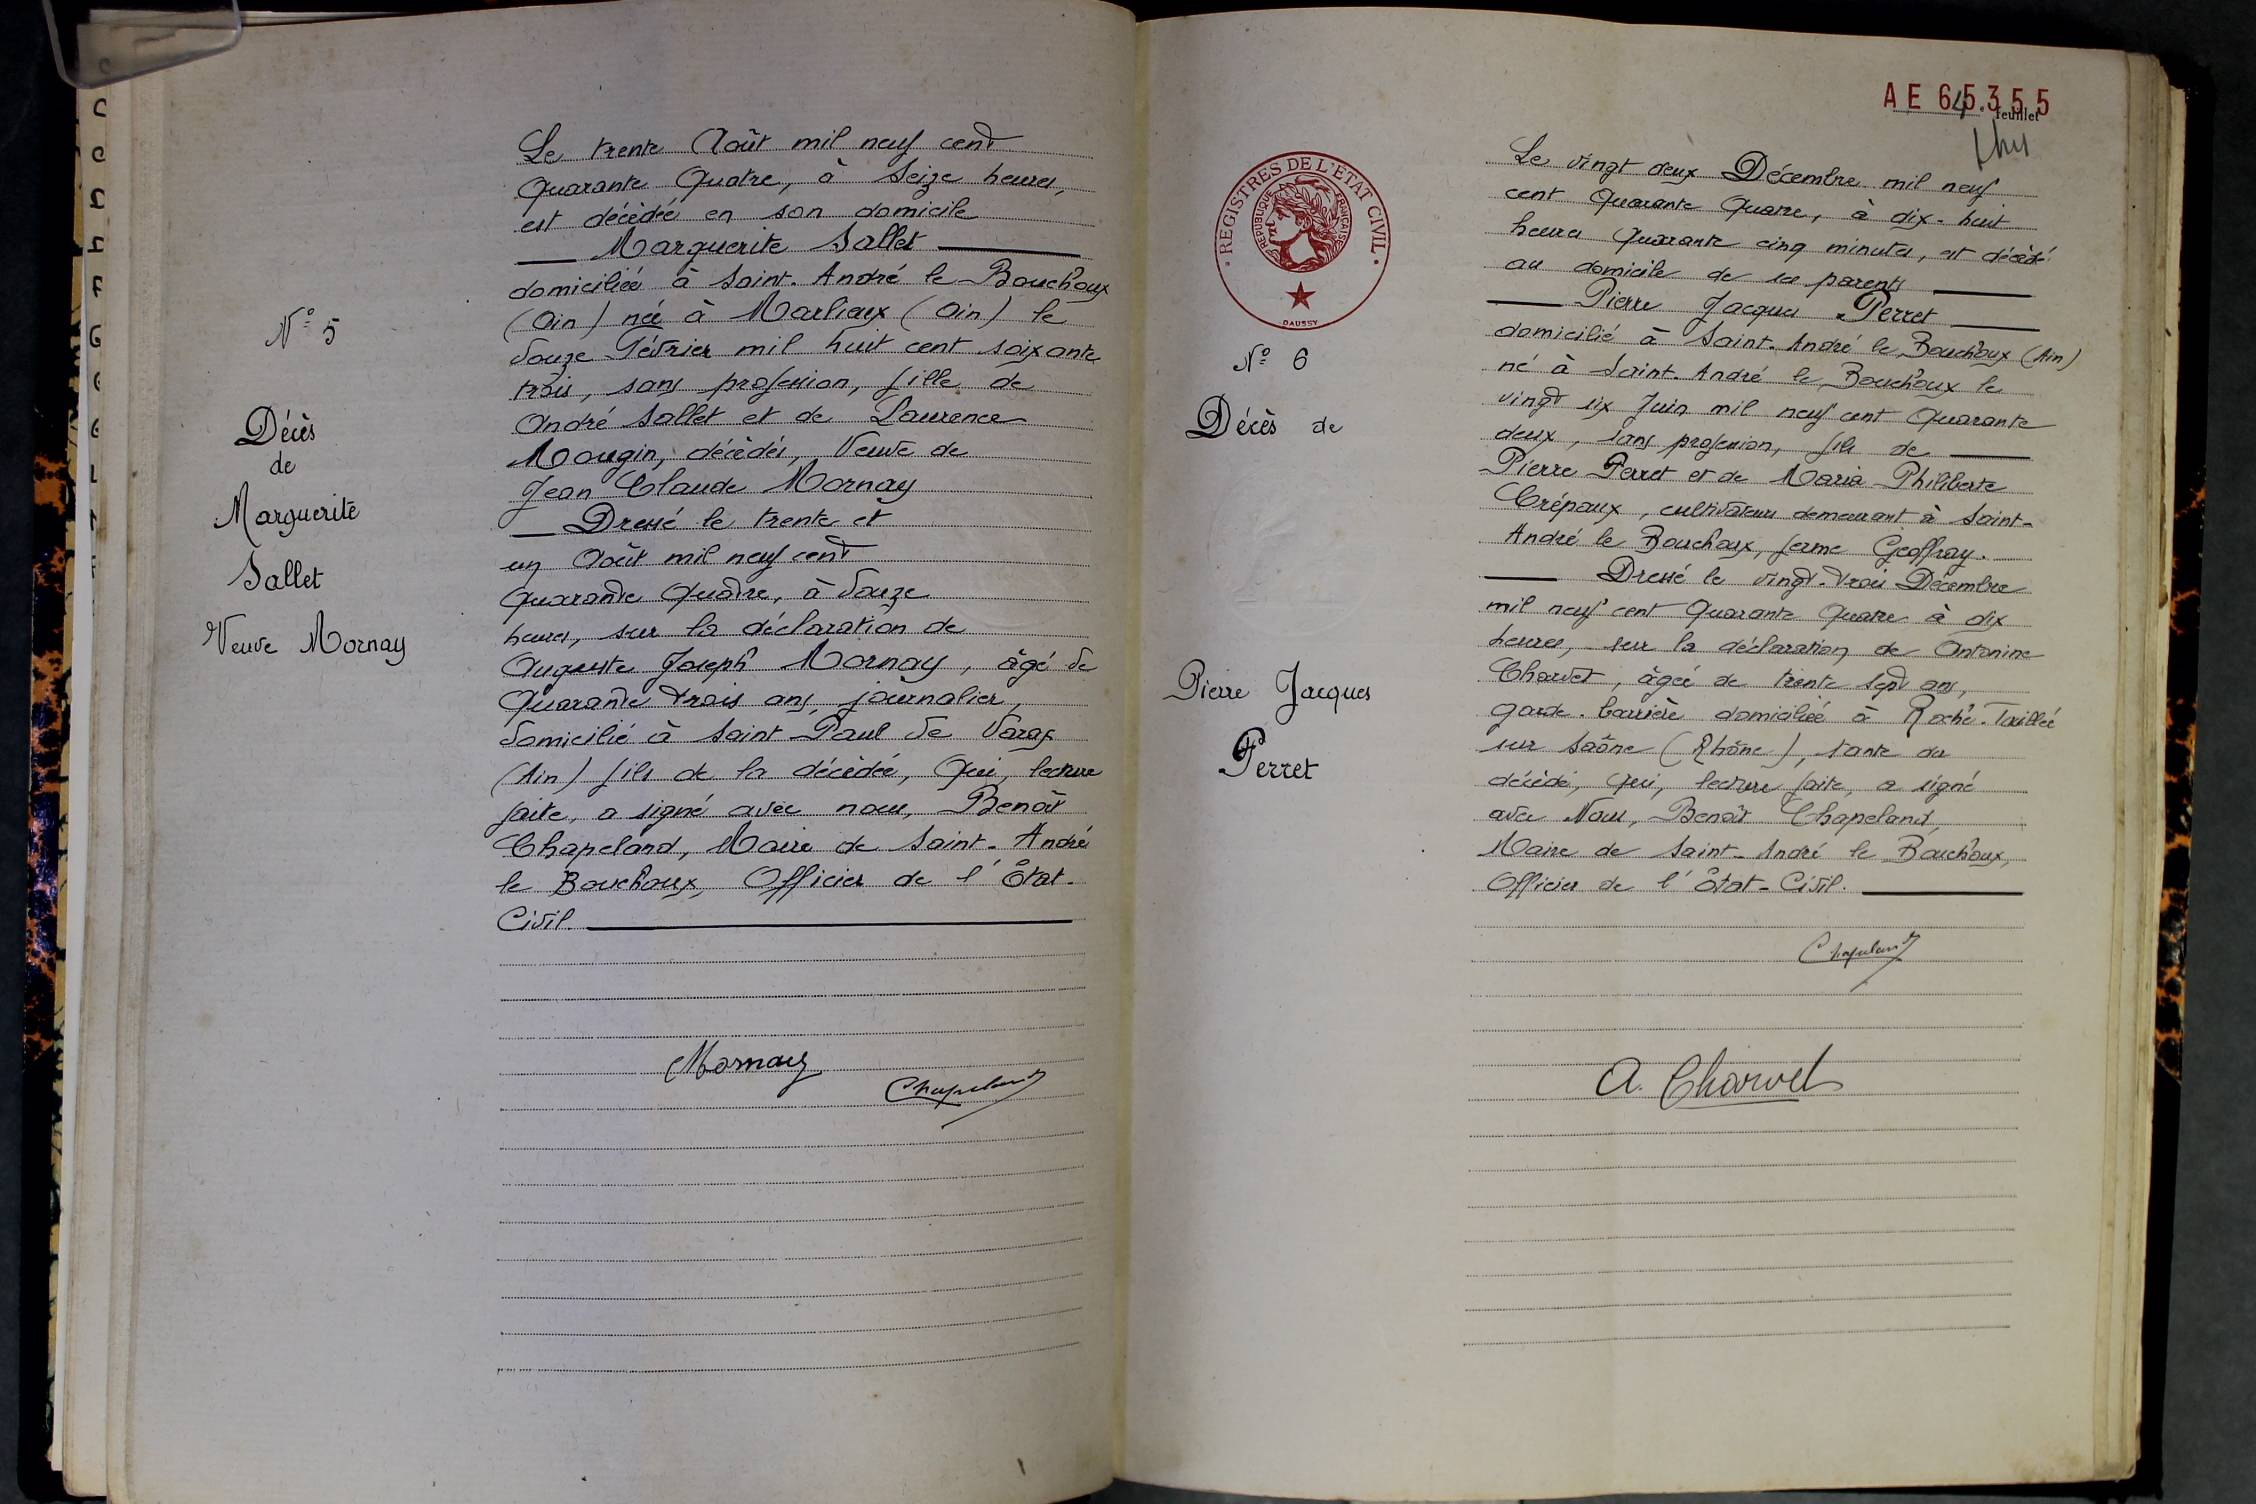 N° 5
Décès
de
Marguerite
Sallet
Veuve Mornay
Le trente Août mil neuf cent
quarante quatre, à seize heures,
est décédée en son domicile
Marguerite Sallet
domiciliée à Saint-André le Bouchoux
(Ain) née à Marlieux (Ain) le
douze Février mil huit cent soixante
trois, sans profession, fille de
André Sallet et de Laurence
Mougin, décédés, Veuve de
Jean Claude Mornay
Dressé le trente et
un Août mil neuf cent
quarante quatre, à douze
heures, sur la déclaration de
Auguste Joseph Mornay, âgé de
quarante trois ans, journalier,
domicilié à Saint Paul de Varax
(Ain) fils de la décédée, qui, lecture
faite, a signé avec nous, Benoît
Chapeland, Maire de Saint-André
le Bouchoux, Officier de l'État-
Civil.
Mornay
Chapeland
AE 645.355
feuillet
REGISTRES DE L'ETAT CIVIL
REPUBLIQUE FRANÇAISE
DAUSSY
N° 6
Décès de
Pierre Jacques
Perret
Le vingt deux Décembre mil neuf
cent quarante quatre, à dix-huit
heures quarante cinq minutes, est décédé
au domicile de ses parents
Pierre Jacques Perret
domicilié à Saint-André le Bouchoux (Ain)
né à Saint-André le Bouchoux le
vingt six Juin mil neuf cent quarante
deux, sans profession, fils de
Pierre Perret et de Maria Philiberte
Crépaux, cultivateurs demeurant à Saint-
André le Bouchoux, ferme Geoffray.
Dressé le vingt-trois Décembre
mil neuf cent quarante quatre à dix
heures, sur la déclaration de Antonine
Charvet, âgée de trente sept ans,
garde-barrière domiciliée à Roche-Taillée
sur Saône (Rhône), tante du
décédé, qui, lecture faite, a signé
avec Nous, Benoît Chapeland,
Maire de Saint-André le Bouchoux,
Officier de l'État-Civil.
Chapeland
A. Charvet